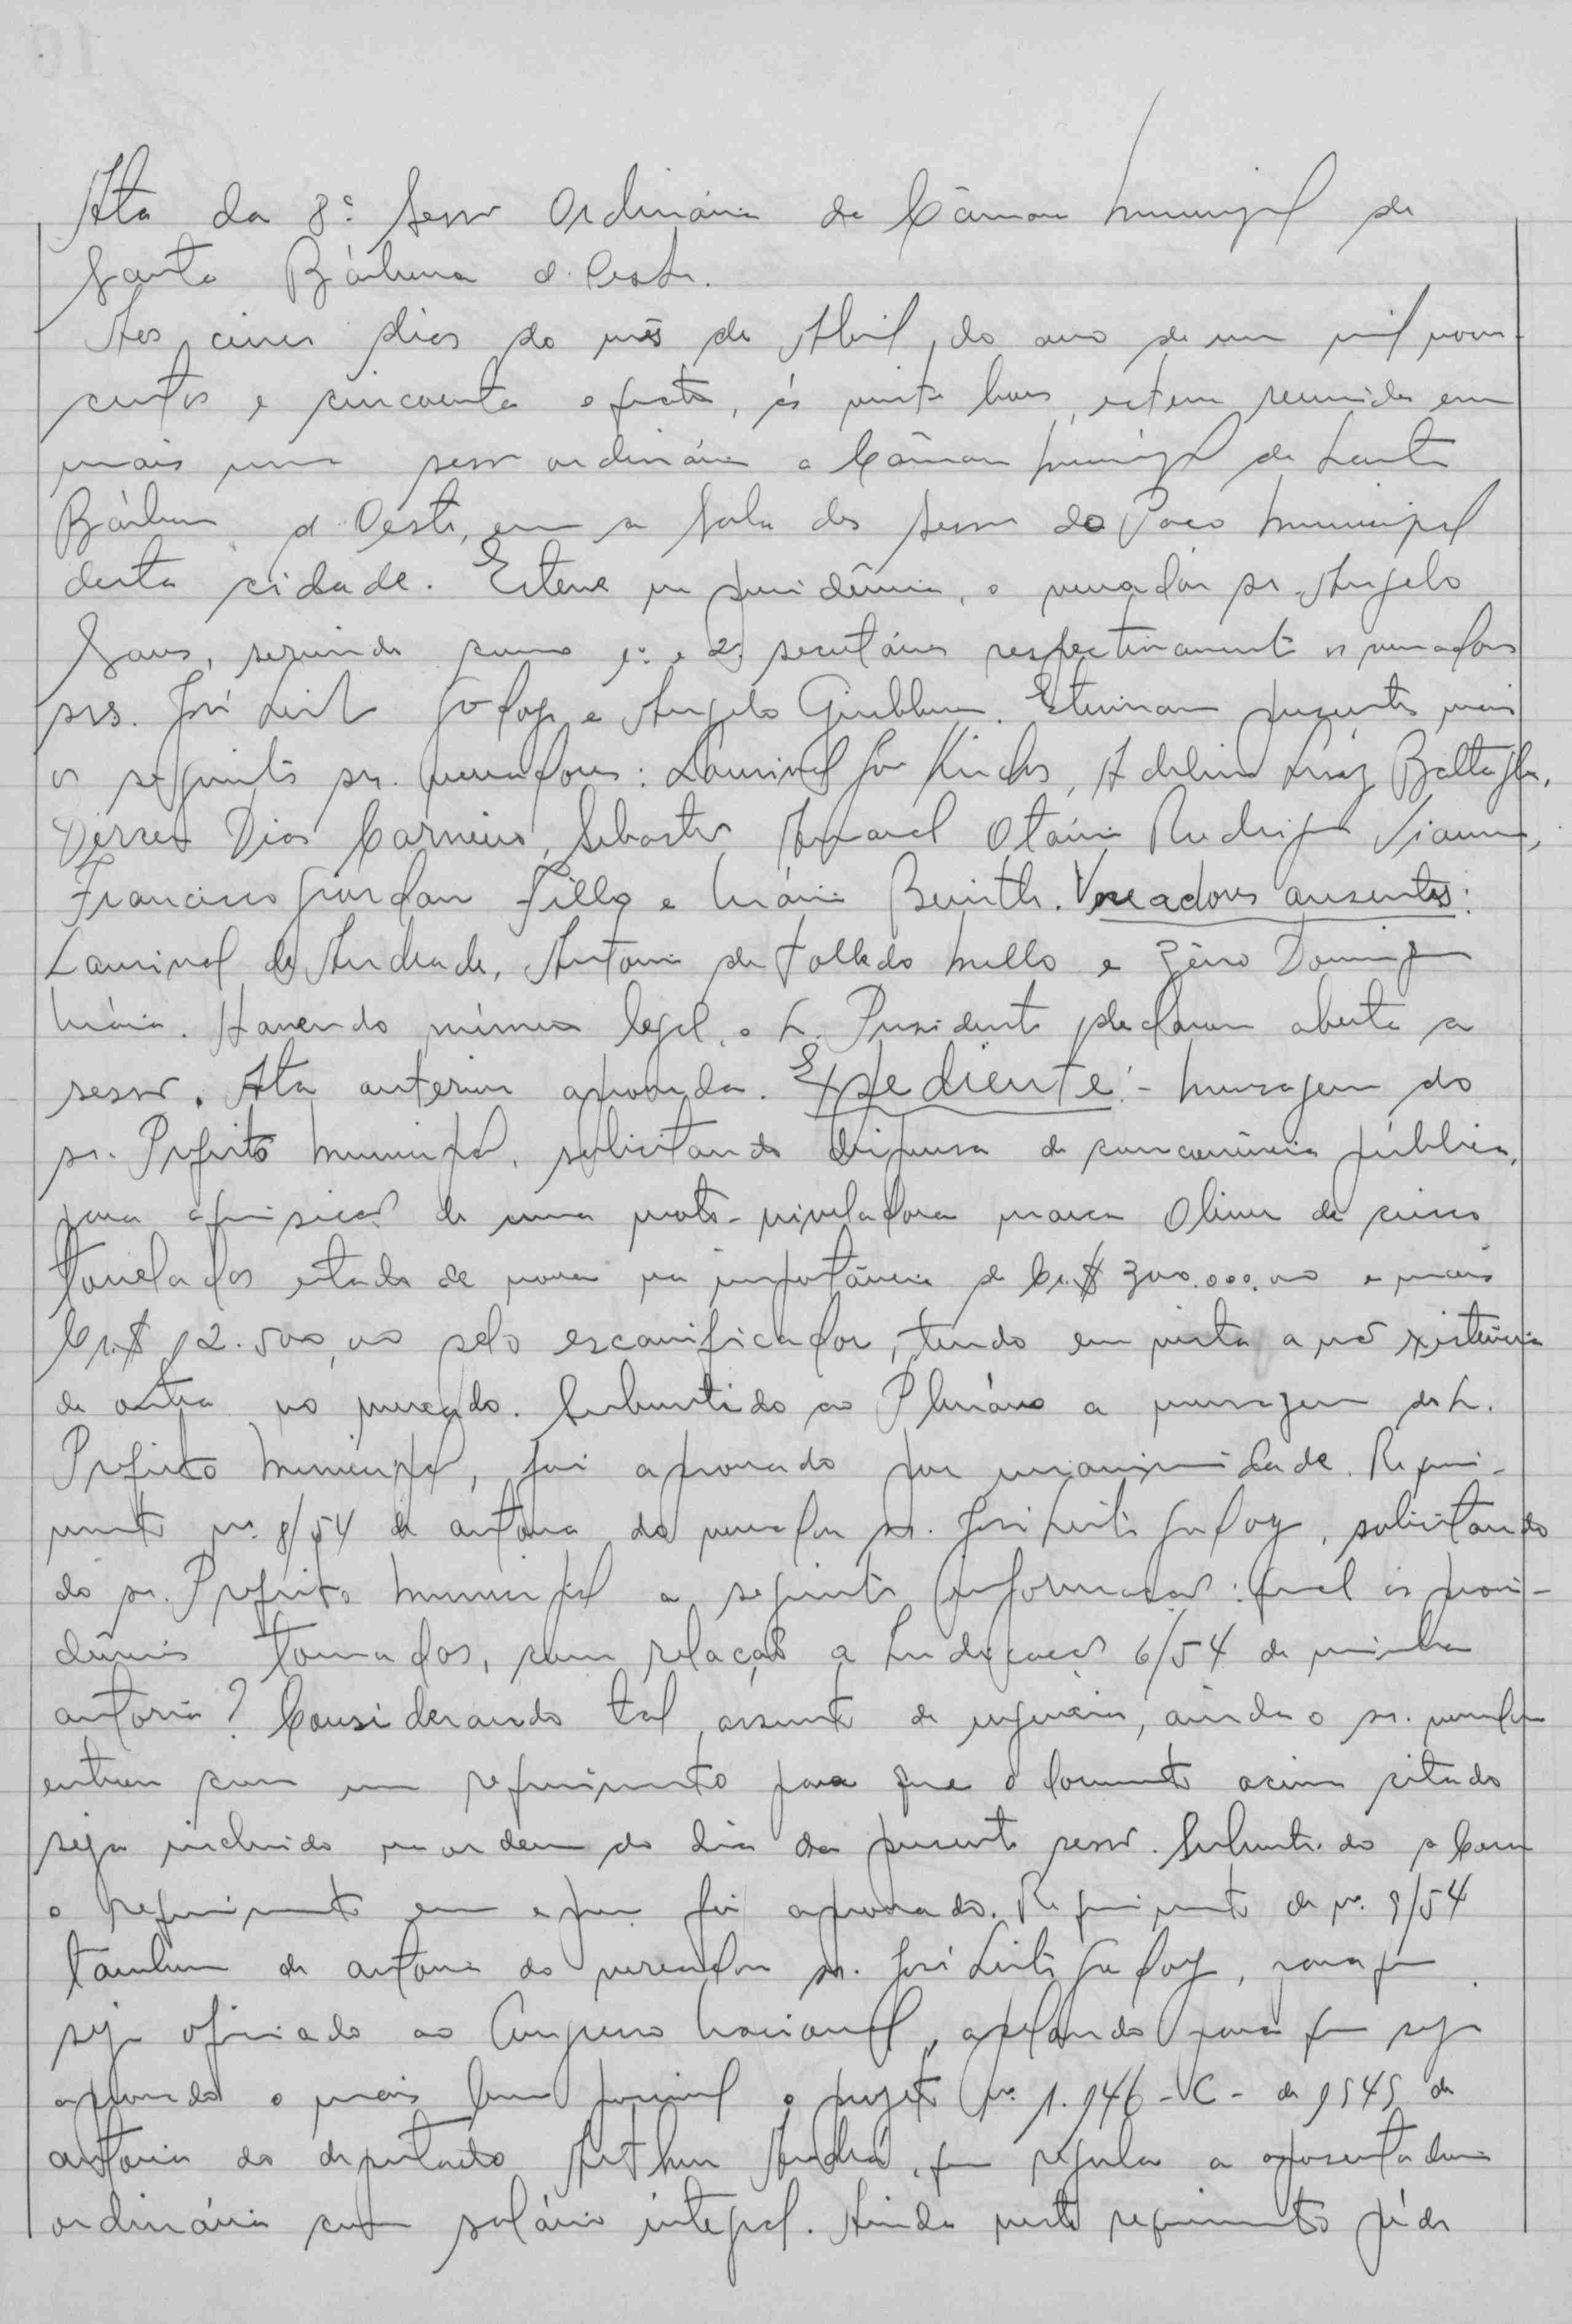 Ata da 8ª Sessão Ordinária da Câmara Municipal de
Santa Bárbara d'Oeste.
Aos cinco dias do mês de Abril, do ano de um mil nove-
centos e cincoenta e quatro, ás vinte horas, esteve reunida em
mais uma sessão ordinária a Câmara Municipal de Santa
Bárbara d'Oeste, em a Sala das Sessões do Paço Municipal
desta cidade. Esteve na presidência, o vereador sr. Angelo
Sans, servindo como 1º e 2º secretários respectivamente os vereadores
srs. José Leite Godoy e Angelo Giubbina. Estiveram presentes mais
os seguintes srs. vereadores: Lourival José Adelino Luiz Battaglia,
Dirceu Dias Carneiro, Sebastião Amaral Otávio Rodrigues Vianna,
Francisco Giordan Filho e Mário Vereadores ausentes:
Laurival de Andrade, Antonio de Tolledo Mello e Zéno Domingues
Mário. Havendo número legal, o Sr. Presidente declarou aberta a
sessão. Ata anterior aprovada. Expediente:- Mensagem do
sr. Prefeito Municipal, solicitando dispensa de concorrência pública,
para aquisição de uma moto-niveladora marca Oliver de cinco
toneladas estado de nova na importância de Cr.$ 300.000,00 e mais
Cr.$ 12.500,00 pelo escarificador, tendo em vista a não existência
de outra no mercado. Submetido ao Plenário a mensagem do Sr.
Prefeito Municipal, foi aprovado por unanimidade. Requeri-
mento nº 8/54 de autoria do vereador sr. José Leite Godoy, solicitando
do sr. Prefeito Municipal a seguinte informação: qual as provi-
dências tomadas, com relação a Indicação 6/54 de minha
autoria? Considerando tal assunto de urgência, ainda o sr. vereador
entrou com um requerimento para que o documento acima citado
seja incluido na ordem do dia da presente sessão. Submetido a Casa
o requerimento em foi aprovado. Requerimento de nº 9/54
tambem de autoria do vereador sr. José Leite Godoy, para que
seja oficiado ao Congresso Nacional, apelando para que seja
aprovado o mais breve possivel o projeto nº 1.146-C- de 1949 de
autoria do deputado Arthur que regula a aposentadoria
ordinária com salário integral. Ainda neste requerimento péde